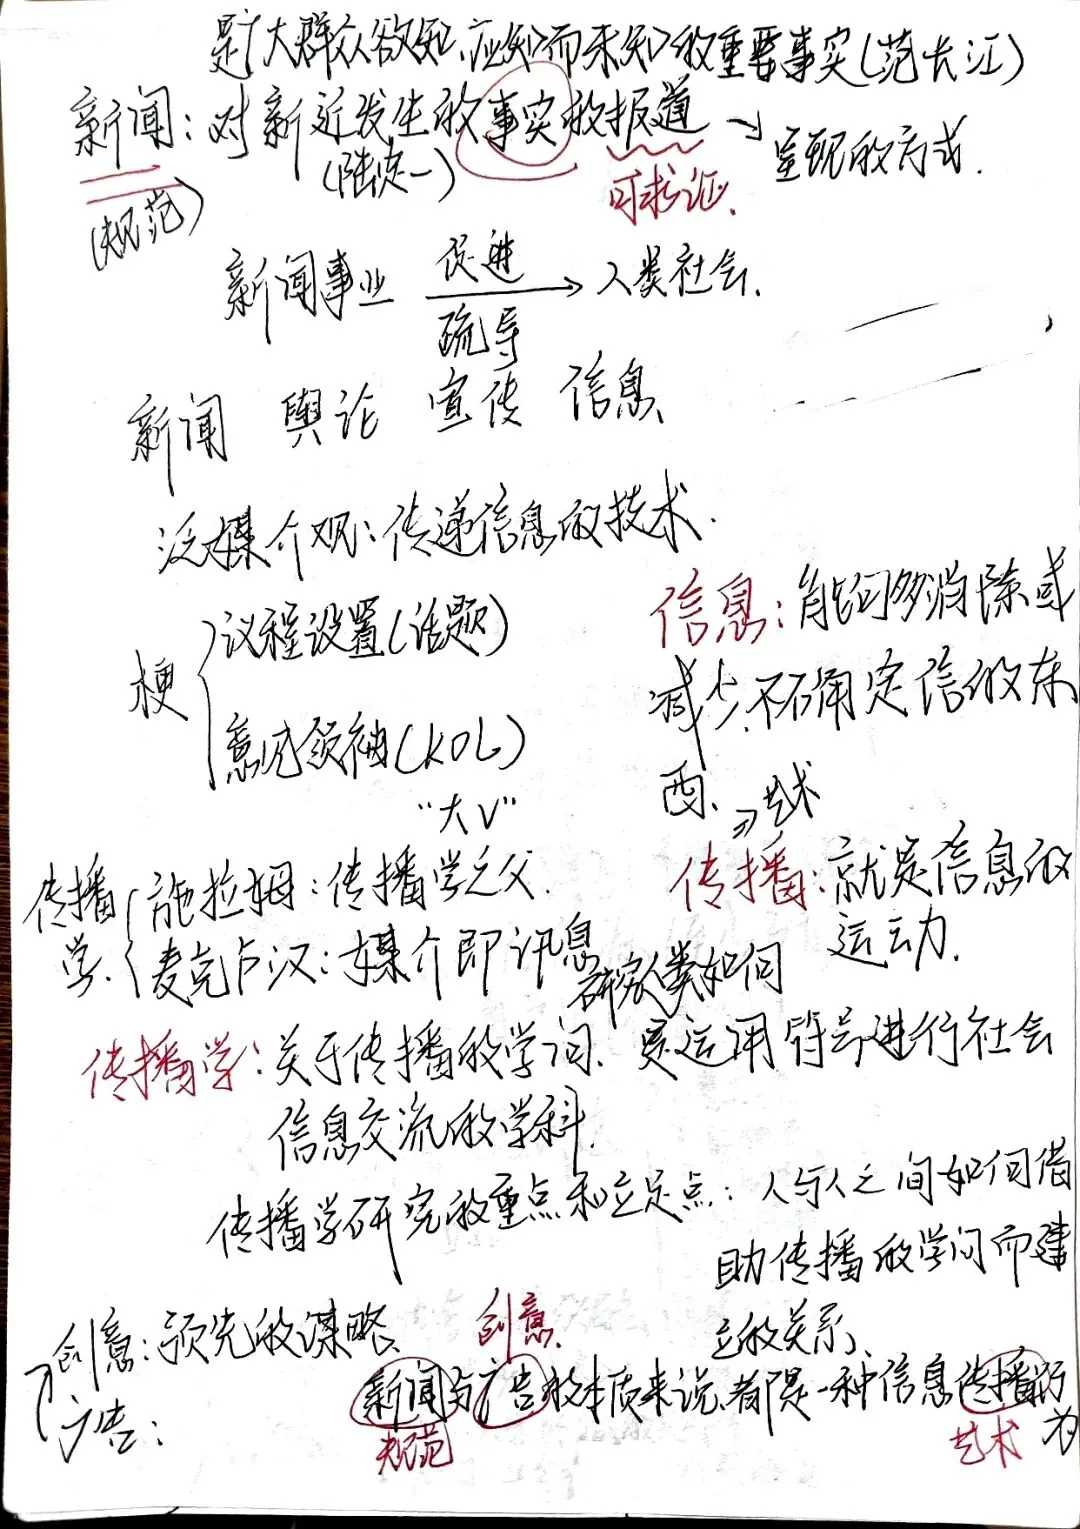 是广大群众欲知、应知而未知的重要事实(范长江)
新闻:对新近发生的事实的报道→呈现的方式.
(规范)
(陆定一)
可求证.
新闻事业 促进 疏导 → 人类社会.
新闻 舆论 宣传 信息、
泛媒介观:传递信息的技术.
梗
议程设置(话题)
意见领袖(KOL)
"大V"
信息:能够消除或
减少不确定信的东
西、
→艺术
传播:就是信息的
运动.
传播学.
施拉姆:传播学之父.
麦克卢汉:媒介即讯息
传播学:关于传播的学问.
研究人类如何
运用符号进行社会
信息交流的学科.
传播学研究的重点和立足点:人与人之间如何借
助传播的学问而建
立的关系、
创意:预先的谋略、
广告:
创意.
新闻与广告的本质来说、都是一种信息传播行为
规范
艺术